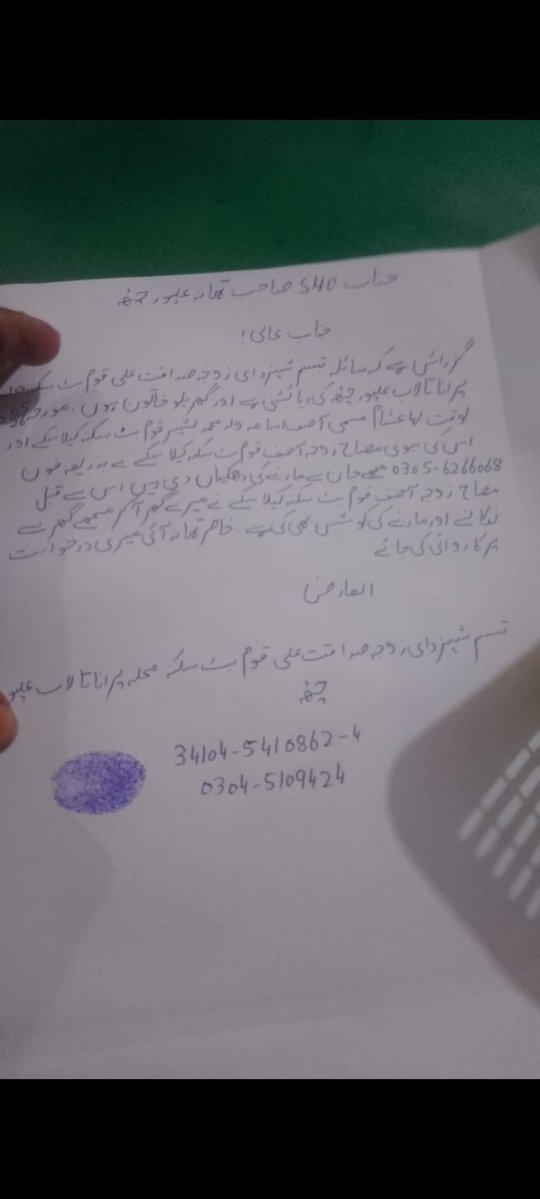 جناب SHO صاحب تھانہ علیپور چٹھہ
جناب عالی!
گزارش ہے کہ سائلہ تبسم شہزادی زوجہ صداقت علی قوم بٹ سکنہ محلہ
پرانا تالاب علیپور چٹھہ کی رہائشی ہے اور گھریلو خاتون ہوں۔ مورخہ
بوقت شام مسمی آصف ولد محمد بشیر قوم بٹ سکنہ کیلاسکے اور
اس کی بیوی زوجہ آصف قوم بٹ سکنہ کیلاسکے نے بذریعہ فون
0305-6266068 مجھے جان سے مارنے کی دھمکیاں دی ہیں اس سے قبل
زوجہ آصف قوم بٹ سکنہ کیلاسکے نے میرے گھر آکر مجھے گھر سے
نکالنے اور مارنے کی کوشش بھی کی ہے۔ حاضر تھانہ آئی میری درخواست
پر کاروائی کی جائے
العارض
تبسم شہزادی زوجہ صداقت علی قوم بٹ سکنہ محلہ پرانا تالاب علیپور
چٹھہ
34104-5410862-4
0304-5109424